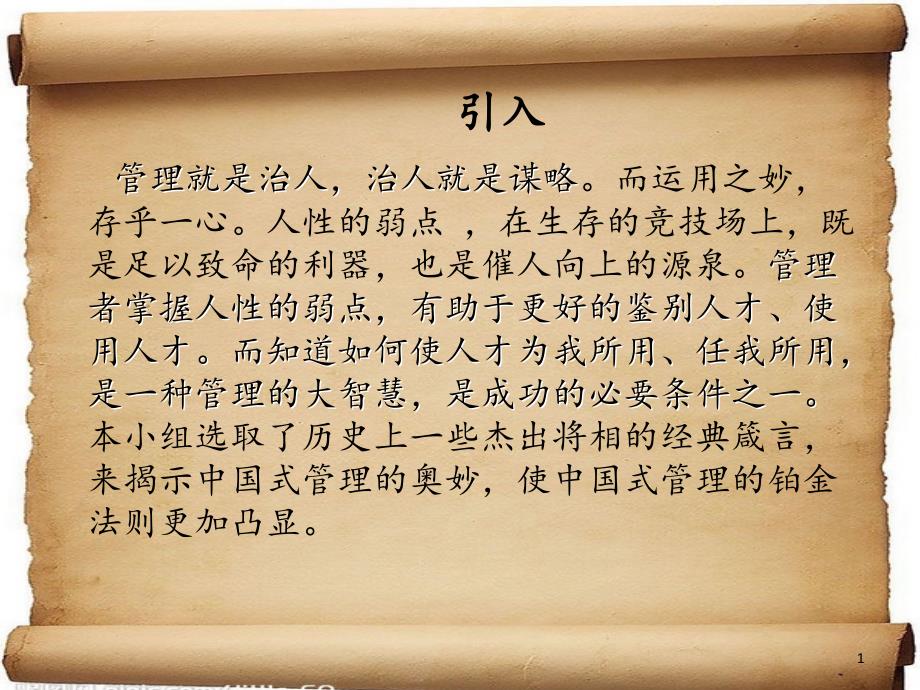 引入
管理就是治人，治人就是谋略。而运用之妙，
存乎一心。人性的弱点 ，在生存的竞技场上，既
是足以致命的利器，也是催人向上的源泉。管理
者掌握人性的弱点，有助于更好的鉴别人才、使
用人才。而知道如何使人才为我所用、任我所用，
是一种管理的大智慧，是成功的必要条件之一。
本小组选取了历史上一些杰出将相的经典箴言，
来揭示中国式管理的奥妙，使中国式管理的铂金
法则更加凸显。
1